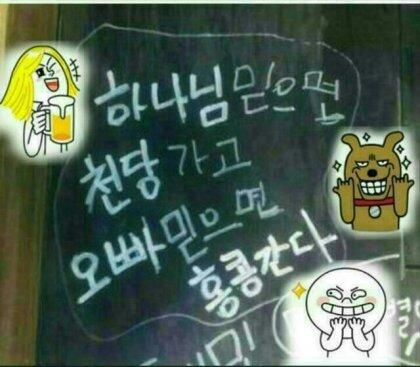 하나님 믿으면
천당 가고
오빠 믿으면
홍콩간다